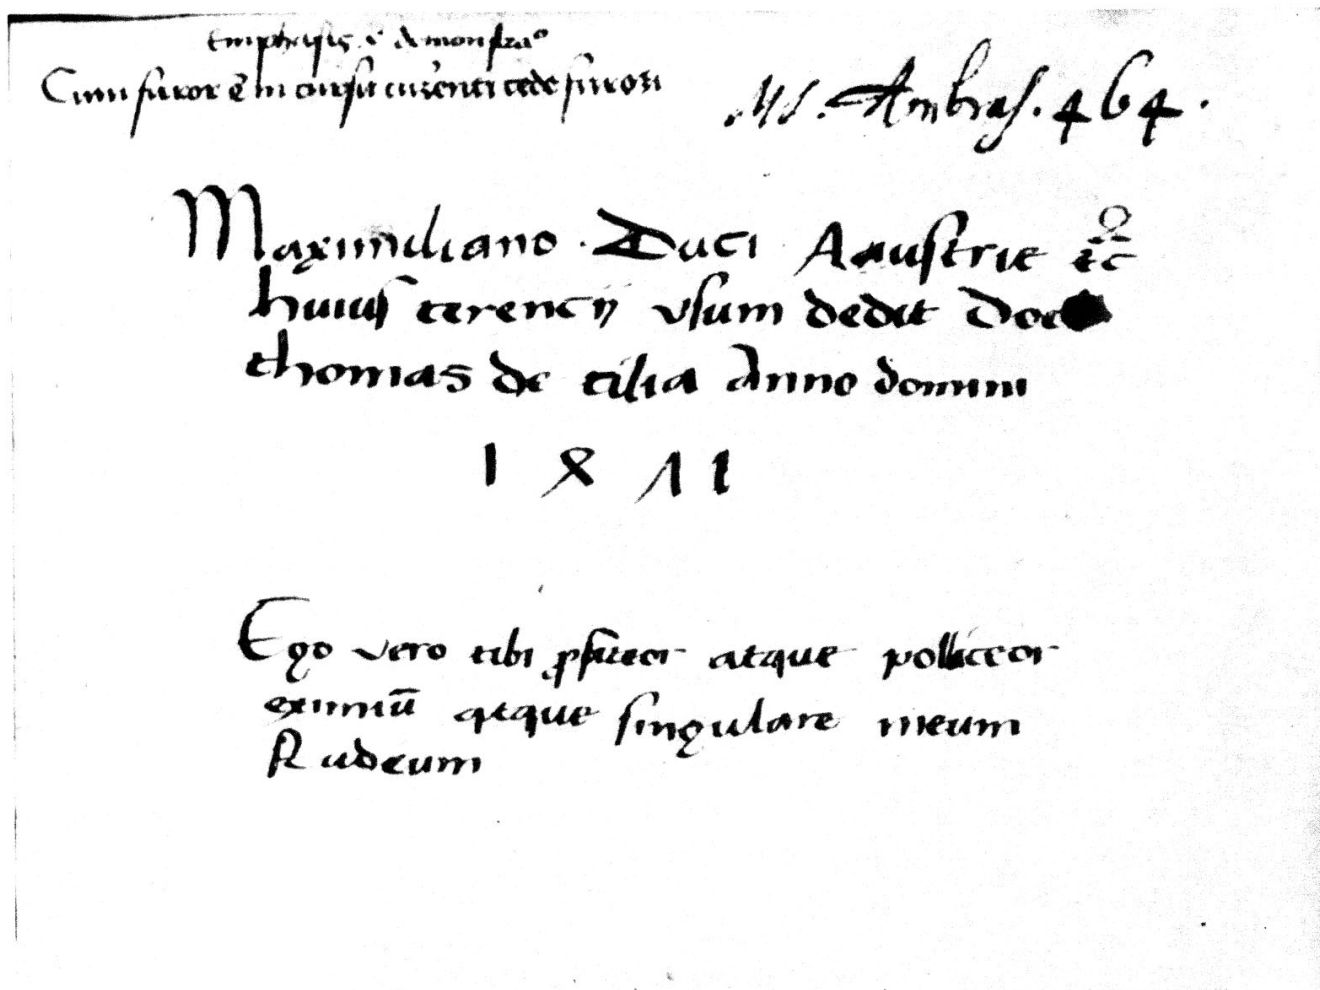 Emphasis ē demonstraº
Cum furor ē in cursu currenti cede furori
MS. Ambras. 464.
Maximiliano · Duci Aaustrie etc
huius terencij vsum dedit Doc
thomas de tilia Anno domini
1 8 Λ 1
Ego vero tibi profiteor atque polliceor
eximiū atque singulare meum
studeum